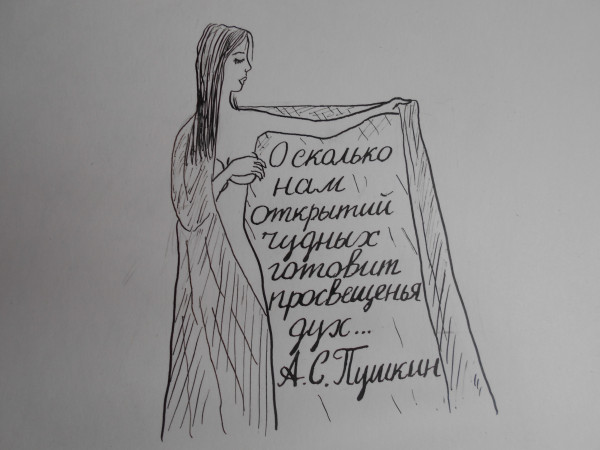 О сколько
нам
открытий
чудных
готовит
просвещенья
дух...
А.С.Пушкин